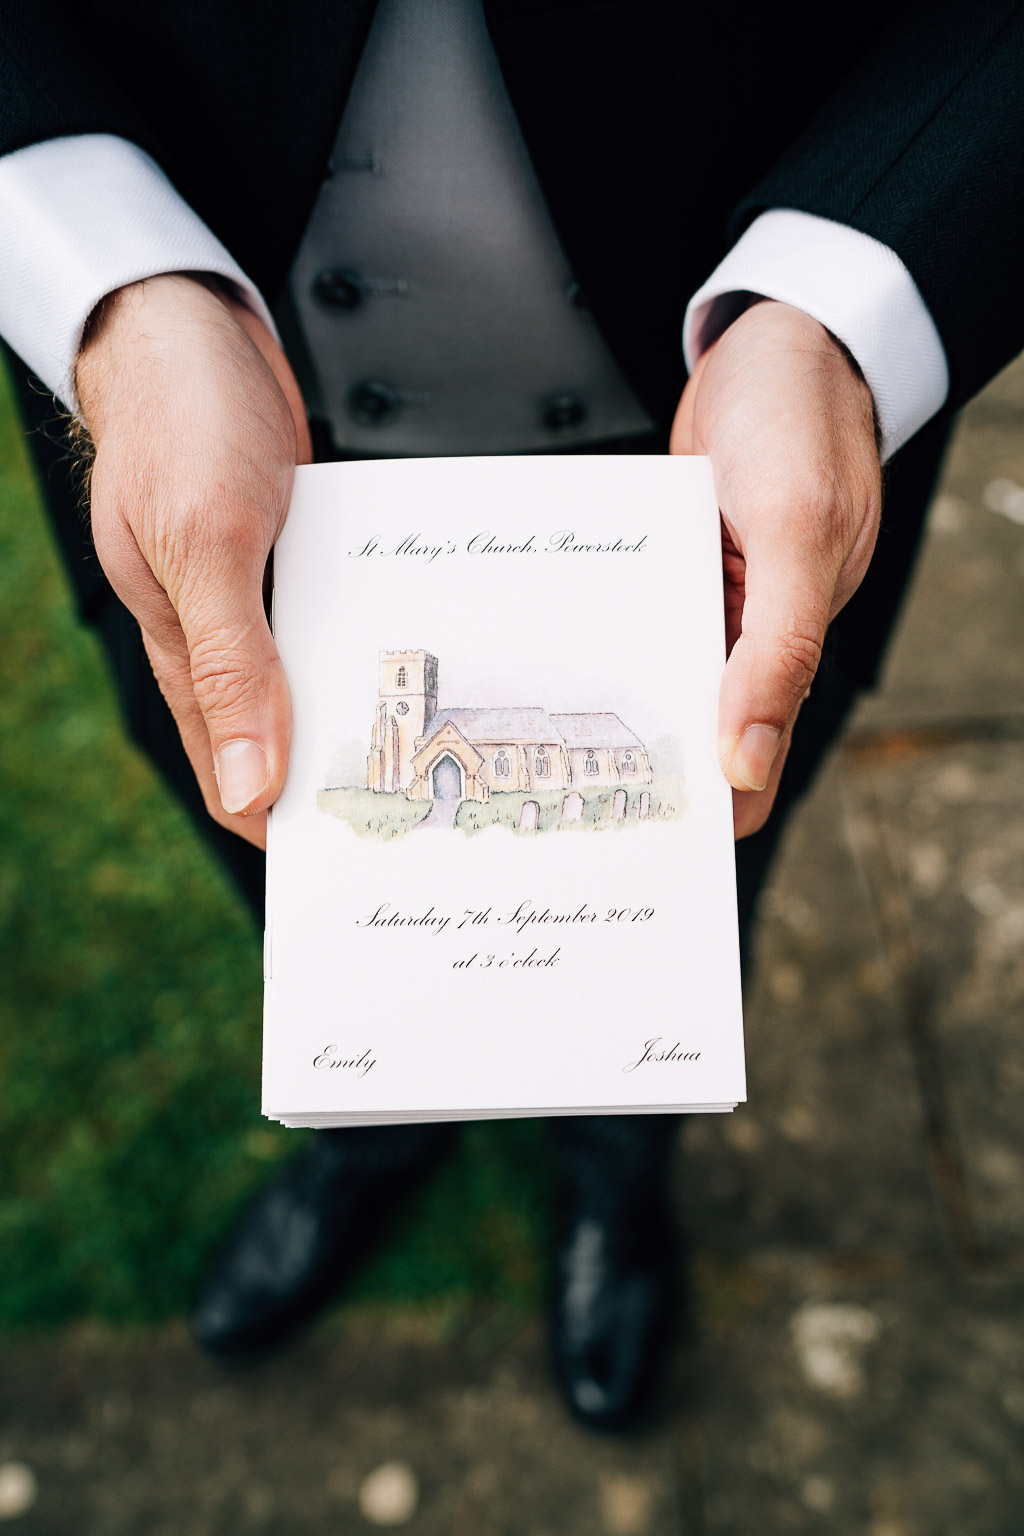 St Mary's Church, Powerstock
Saturday 7th September 2019
at 3 o'clock
Emily
Joshua